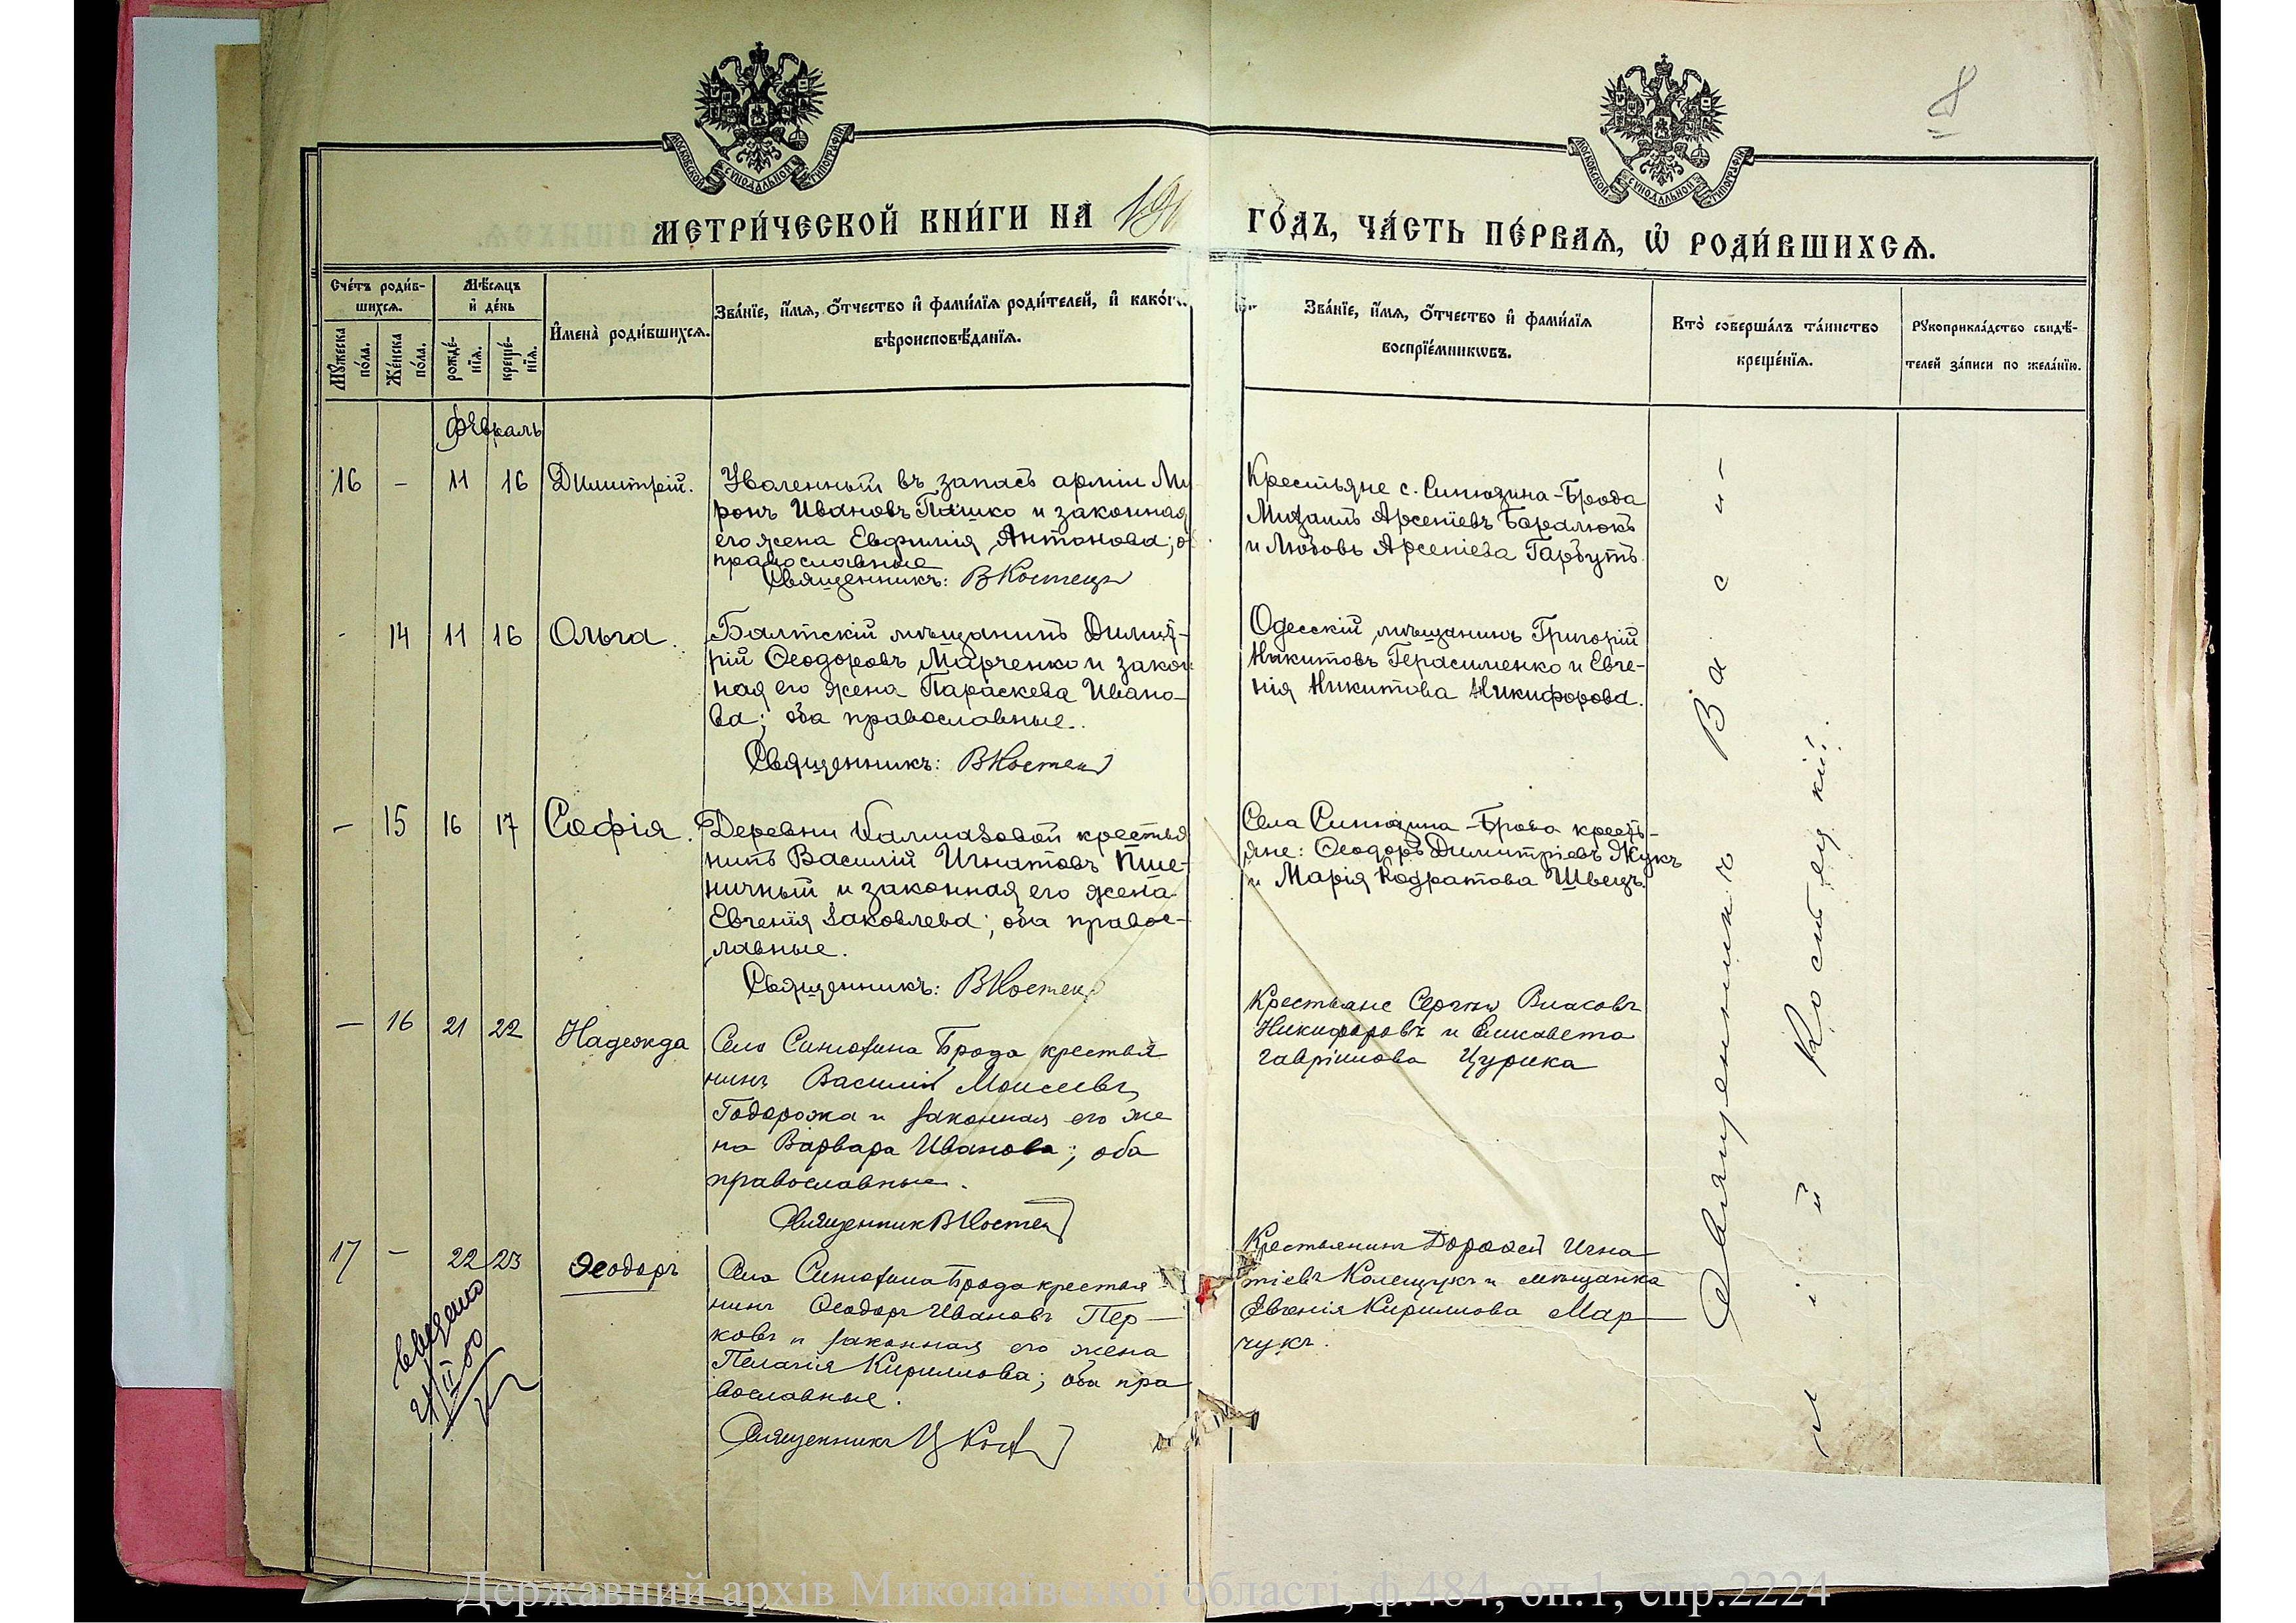 8
МОСКОВСКОЙ СѴНОДАЛЬНОЙ ТИПОГРАФІИ
МОСКОВСКОЙ СѴНОДАЛЬНОЙ ТИПОГРАФІИ
МЕТРИ́ЧЕСКОЙ КНИ́ГИ НА 190
ГО́ДЪ, ЧА́СТЬ ПЕ́РВАѦ, Ѡ҆ РОДИ́ВШИХСѦ.
Сче́тъ роди́в-
шихсѧ.
Мꙋ́жеска по́ла.
Же́нска по́ла.
Мѣ́сѧцъ
и҆ де́нь
рожде́-
нїѧ.
креще́-
нїѧ.
И҆мена̀ роди́вшихсѧ.
Зва́нїе, и҆́мѧ, о҆́тчество и҆ фами́лїѧ роди́телей, и҆ како́г
вѣроисповѣ́данїѧ.
Зва́нїе, и҆́мѧ, о҆́тчество и҆ фами́лїѧ
воспрїе́мникѡвъ.
Кто̀ соверша́лъ та́инство
креще́нїѧ.
Рꙋкоприкла́дство свидѣ́-
телей за́писи по жела́нїю.
Февраль
16 - 11 16 Димитрій.
Уволенный въ запасъ арміи Ми
ронъ Ивановъ Пашко и законная
его жена Евфимія Антонова; о
православные
Священникъ: ВКостец
Крестьяне с. Синюхина-Брода
Михаилъ Арсеніевъ Баралюкъ
и Любовь Арсеніева Гарбузъ.
- 14 11 16 Ольга.
Балтскій мѣщанинъ Димит-
рій Ѳеодоровъ Марченко и закон
ная его жена Параскева Ивано-
ва; оба православные.
Священникъ: ВКостец
Одесскій мѣщанинъ Григорій
Никитовъ Герасименко и Евге-
нія Никитова Никифорова.
- 15 16 17 Софія.
Деревни Калмазовой крестья
нинъ Василій Игнатовъ Пше-
ничный и законная его жена
Евгенія Іаковлева; оба правос-
лавные.
Священникъ: ВКостец
Села Синюхина-Брода кресть-
яне: Ѳеодоръ Димитріевъ Жукъ
и Марія Кодратова Швецъ.
- 16 21 22 Надежда
Села Синюхина Брода крестья
нинъ Василий Моисеевъ
Тодорожа и законная его же
на Варвара Иванова; оба
православные.
Священник ВКостец
Крестьяне Сергѣй Власовъ
Никифоровъ и Елисавета
Гавріилова Цурика
17 - 22 23 Ѳеодоръ
Села Синюхина Брода крестья
нинъ Ѳеодоръ Ивановъ Пер-
ковъ и законная его жена
Пелагія Кириллова; оба пра
вославные.
Священникъ
Крестьянинъ Дороѳей Игна-
тіевъ Колещукъ и мѣщанка
Евгенія Кириллова Мар-
чукъ.
Священникъ Васи-
лій Костецкій.
Державний архів Миколаївської області, ф.484, оп.1, спр.2224